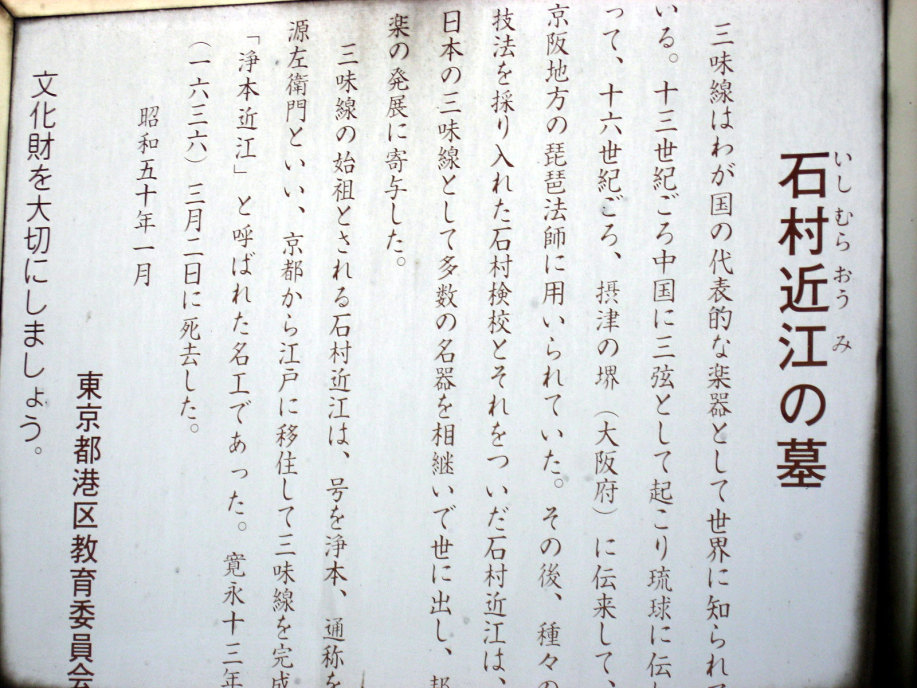 石村近江の墓
いし むら おう み
三味線はわが国の代表的な楽器として世界に知られ
いる。十三世紀ごろ中国に三弦として起こり琉球に伝
って、十六世紀ごろ、摂津の堺（大阪府）に伝来して、
京阪地方の琵琶法師に用いられていた。その後、種々の
技法を採り入れた石村検校とそれをついだ石村近江は、
日本の三味線として多数の名器を相継いで世に出し、邦
楽の発展に寄与した。
三味線の始祖とされる石村近江は、号を浄本、通称を
源左衛門といい、京都から江戸に移住して三味線を完成
「浄本近江」と呼ばれた名工であった。寛永十三年
（一六三六）三月二日に死去した。
昭和五十年一月
東京都港区教育委員会
文化財を大切にしましょう。